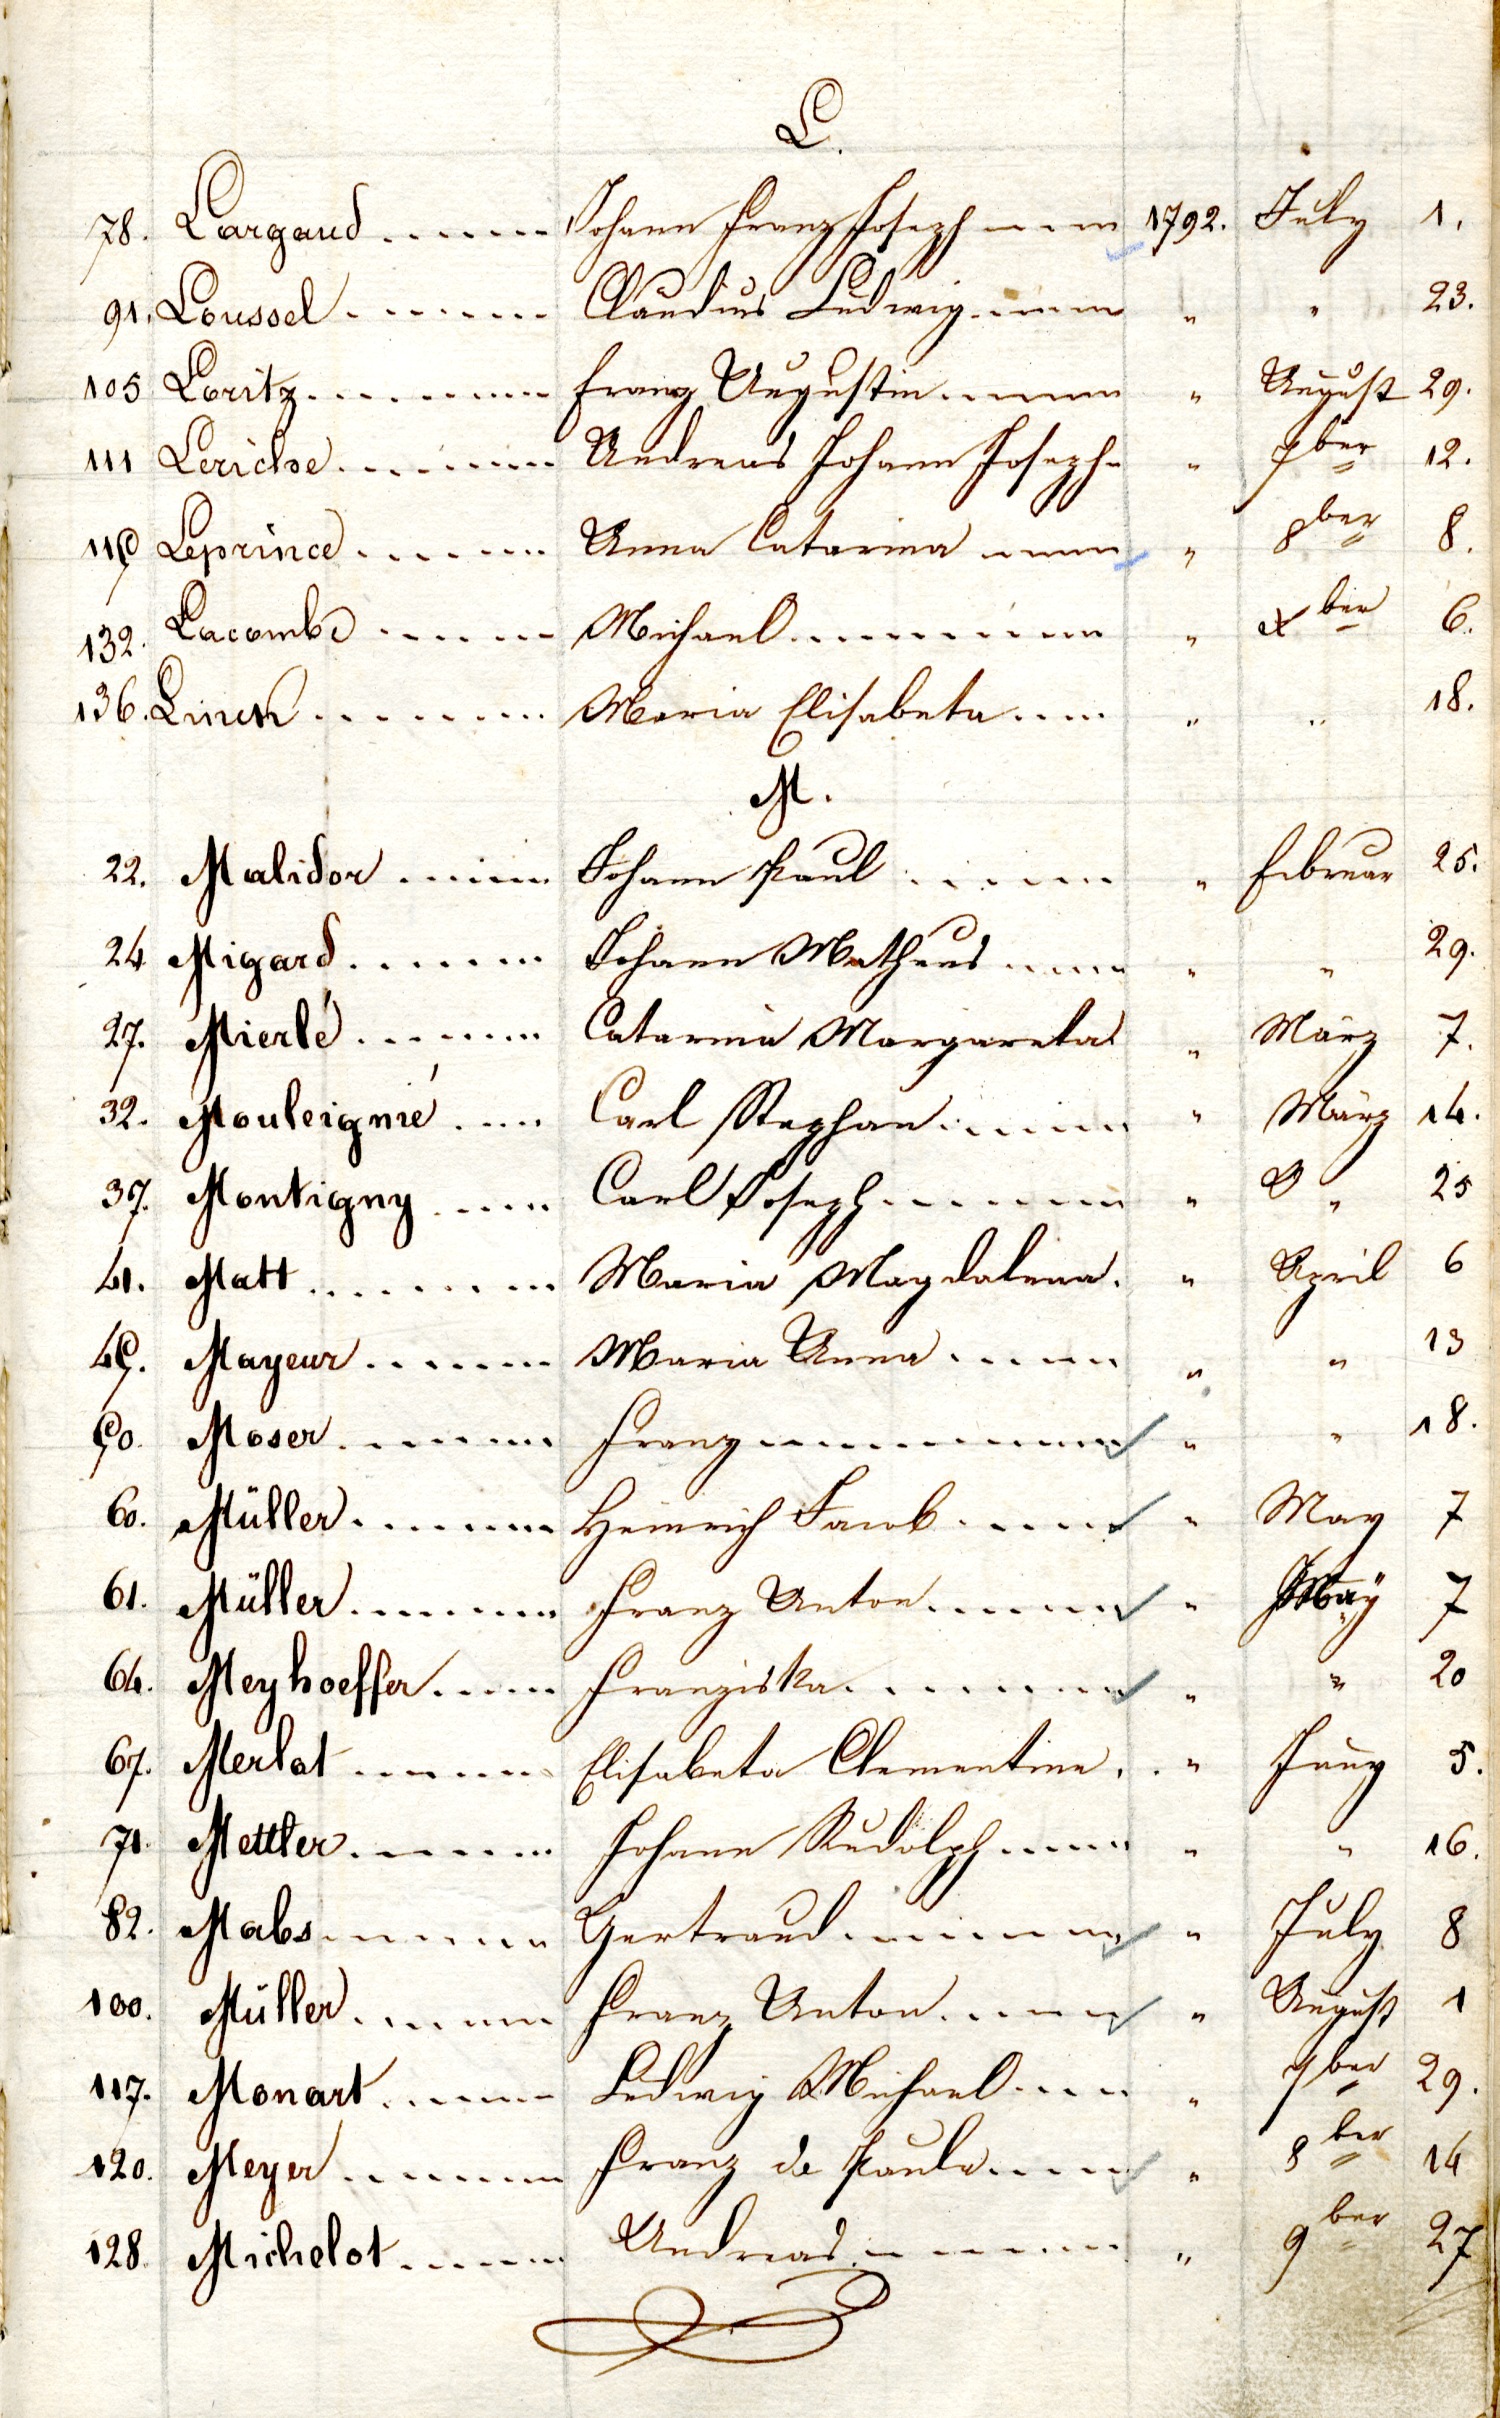 L.
78. Largaud ....... Johann Franz Joseph ..... 1792. July 1.
91. Loussel ....... Claudius Ludwig ..... " " 23.
105 Loritz ....... Franz Augustin ..... " August 29.
111 Leriche ....... Andreas Johann Joseph " 7ber 12.
119 Leprince ....... Anna Catarina ..... " 8ber 8.
132. Lacombe ....... Michael ..... " xber 6.
136. ....... Maria Elisabeta .... " " 18.
M.
22. Malidor ....... Johann Paul ..... " Februar 25.
24 Migard ....... Johann Matheus ..... " " 29.
27. Mierlé ....... Catarina Margareta " März 7.
32. Mouleignié .... Carl Stephan ..... " März 14.
37. Montigny ..... Carl Joseph ..... " " 25
41. Matt ....... Maria Magdalena. " April 6
49. Mayeur ....... Maria Anna ..... " " 13
50. Moser ....... Franz ..... " " 18.
60. Müller ....... Heinrich Jacob ..... " May 7
61. Müller ....... Franz Anton ..... " May 7
64. Meyhoeffer ..... Franziska ..... " " 20
67. Merlat ...... Elisabeta Clementine. " Juny 5.
71. Mettler ....... Johann Rudolph ..... " " 16.
82. Mabs ....... Gertraud ..... " July 8
100. Müller ....... Franz Anton ..... " August 1
117. Monart ...... Ludwig Michael .... " 7ber 29.
120. Meyer ....... Franz de Paula ..... " 8ber 14
128. Michelot ...... Andreas ..... " 9ber 27